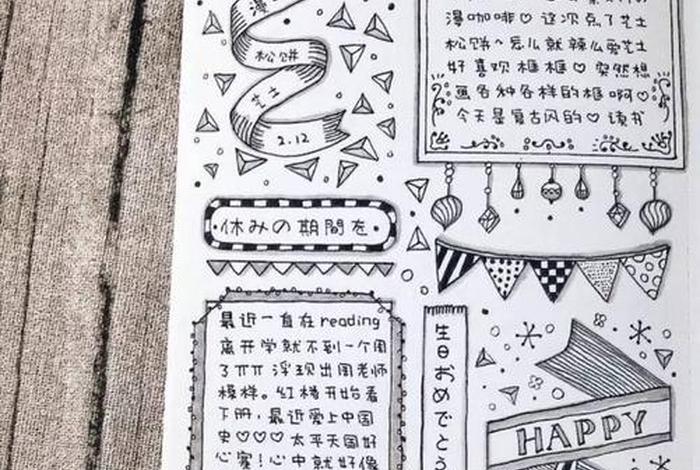 漫
松饼
芝士
2.12
漫咖啡♡ 这次点了芝士
松饼~怎么就辣么爱芝士
好喜欢框框♡ 突然想
画各种各样的框啊♡
今天是复古风的♡ 读书
休みの期間を
最近一直在reading
离开学就不到一个周
了TT TT 浮现出周老师
模样。红楼开始看
下册,最近爱上中国
史♡♡♡ 太平天国好
心塞!心中就好像
生日おめでとう
HAPPY